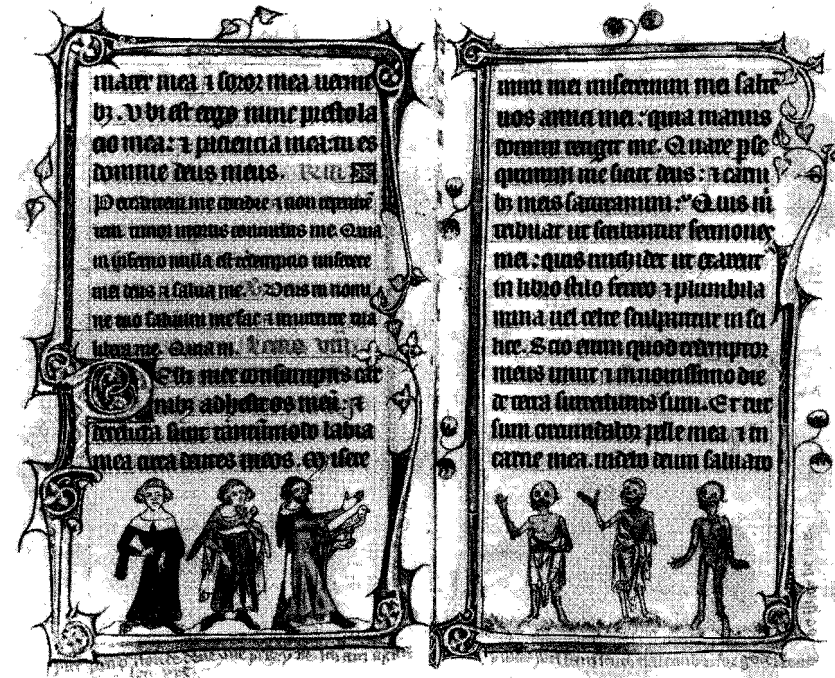 mater mea ⁊ soror mea vermi
bꝫ. Ubi est ergo nunc prestola
cio mea: ⁊ paciencia mea: tu es
domine deus meus.
Peccantem me cotidie ⁊ non
tem timor mortis conturbat me. Quia
in inferno nulla est redempcio miserere
mei deus ⁊ salua me. Deus in nomi
ne tuo saluum me fac ⁊ in uirtute tua
libera me. Quia in. Lectio viii.
Pelli mee consumptis car
nibꝫ adhesit os meū: ⁊
derelicta sunt tantūmodo labia
mea circa dentes meos. Misere
mini mei miseremini mei salte
uos amici mei: quia manus
domini tetigit me. Quare pse
quimini me sicut deus: ⁊ carni
bꝫ meis saturamini: Quis m̄
tribuat ut scribantur sermones
mei: quis michi det ut exarent᷑
in libro stilo ferreo ⁊ plumbi la
mina uel celte sculpantur in si
lice. Scio enim quod redemptor
meus uiuit ⁊ in nouissimo die
de terra surrecturus sum. Et rur
sum circumdabor pelle mea ⁊ in
carne mea uidebo deum saluato